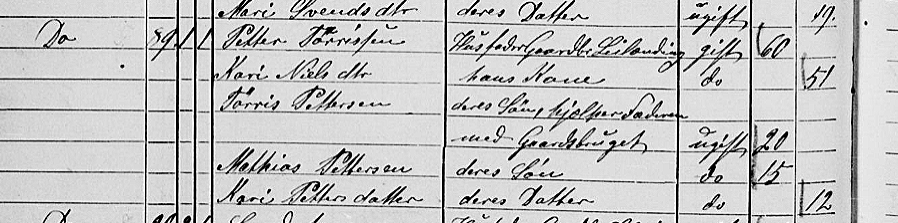 Mari Svends dtr deres Datter ugift 19.
Do 89 1 1 Petter Törrissen Husfader Gaardbr. Leilænding gift 60
Kari Niels dtr hans Kone do 51
Törris Pettersen deres Søn, hjælper Faderen
med Gaardsbruget ugift 20
Mathias Pettersen deres Søn do 15
Kari Petters datter deres Datter do 12
Do